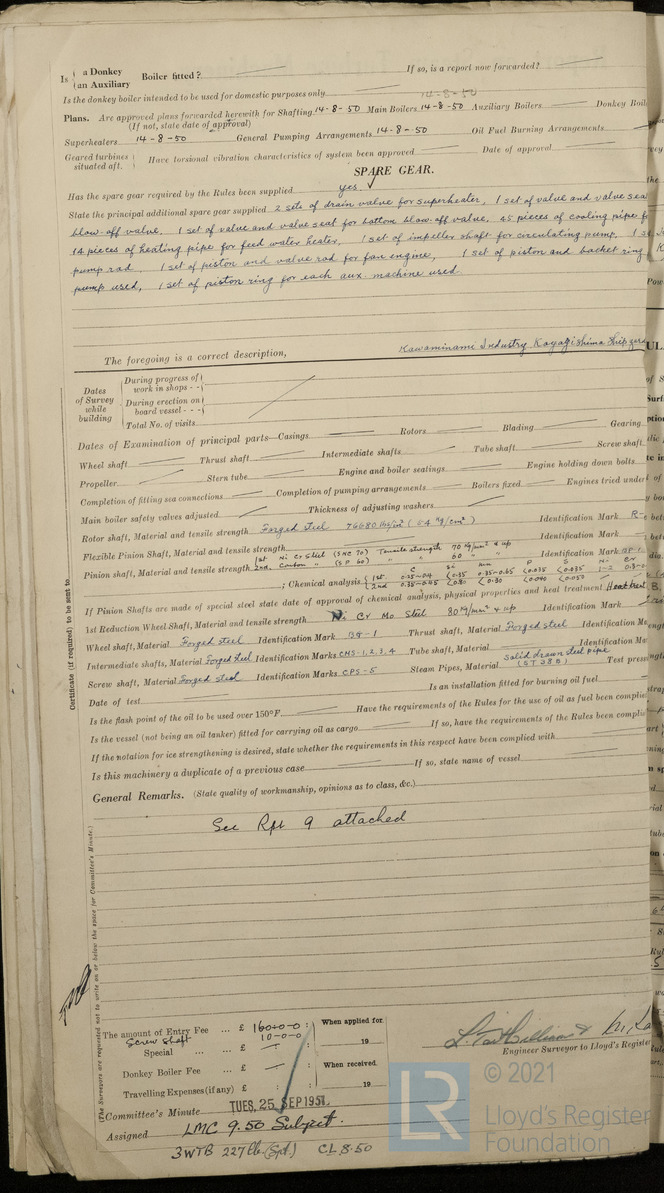 Is { a Donkey / an Auxiliary } Boiler fitted? If so, is a report now forwarded?
Is the donkey boiler intended to be used for domestic purposes only 14-8-50
Plans. Are approved plans forwarded herewith for Shafting 14-8-50 Main Boilers 14-8-50 Auxiliary Boilers Donkey Boil
(If not, state date of approval)
Superheaters 14-8-50 General Pumping Arrangements 14-8-50 Oil Fuel Burning Arrangements
Geared turbines situated aft. } Have torsional vibration characteristics of system been approved Date of approval
SPARE GEAR.
Has the spare gear required by the Rules been supplied yes. ✓
State the principal additional spare gear supplied 2 sets of drain valve for superheater, 1 set of valve and valve sea
blow-off valve, 1 set of valve and valve seat for bottom blow-off valve, 45 pieces of cooling pipe f
14 pieces of heating pipe for feed water heater, 1 set of impeller shaft for circulating pump, 1 s
pump rod, 1 set of piston and valve rod for fan engine, 1 set of piston and bucket ring
pump used, 1 set of piston ring for each aux. machine used.
The foregoing is a correct description, Kawaminami Industry Koyagishima Shipyard
Dates of Survey while building
During progress of work in shops - -
During erection on board vessel - - -
Total No. of visits
Dates of Examination of principal parts—Casings Rotors Blading Gearing
Wheel shaft Thrust shaft Intermediate shafts Tube shaft Screw shaft
Propeller Stern tube Engine and boiler seatings Engine holding down bolts
Completion of fitting sea connections Completion of pumping arrangements Boilers fixed Engines tried under
Main boiler safety valves adjusted Thickness of adjusting washers
Rotor shaft, Material and tensile strength Forged steel 76680 lbs/in² (54 kg/cm²) Identification Mark R-
Flexible Pinion Shaft, Material and tensile strength Identification Mark
Pinion shaft, Material and tensile strength 1st Ni Cr Steel (SNC 70) Tensile strength 70 kg/mm² & up Identification Mark
2nd. Carbon " (SF 60) " 60 " "
; Chemical analysis C Si Mn P S Ni Cr
1st 0.25-0.4 <0.35 0.35-0.65 <0.035 <0.035
2nd 0.35-0.45 <0.30 <0.040 <0.050
If Pinion Shafts are made of special steel state date of approval of chemical analysis, physical properties and heat treatment Heat treat
1st Reduction Wheel Shaft, Material and tensile strength Ni Cr Mo Steel 80 kg/mm² & up Identification Mark
Wheel shaft, Material Forged steel Identification Mark BG-1 Thrust shaft, Material Forged steel Identification Ma
Intermediate shafts, Material Forged steel Identification Marks CMS-1,2,3,4 Tube shaft, Material Identification Ma
Screw shaft, Material Forged steel Identification Marks CPS-5 Steam Pipes, Material Solid drawn steel pipe (ST 38 B) Test press
Date of test Is an installation fitted for burning oil fuel
Is the flash point of the oil to be used over 150°F. Have the requirements of the Rules for the use of oil as fuel been complie
Is the vessel (not being an oil tanker) fitted for carrying oil as cargo If so, have the requirements of the Rules been compli
If the notation for ice strengthening is desired, state whether the requirements in this respect have been complied with
Is this machinery a duplicate of a previous case If so, state name of vessel
General Remarks. (State quality of workmanship, opinions as to class, &c.)
See Rpt 9 attached
Certificate (if required) to be sent to
(The Surveyors are requested not to write on or below the space for Committee's Minute.)
The amount of Entry Fee ... £ 160-0-0 : When applied for
Screw Shaft 10-0-0
Special ... ... £ : 19
Donkey Boiler Fee ... £ : When received.
Travelling Expenses (if any) £ : 19
Engineer Surveyor to Lloyd's Register
Committee's Minute TUES. 25 SEP 1951
Assigned LMC 9.50 Subject.
3WTB 227 lb. (Spt.) CL 8.50
LR
© 2021
Lloyd's Register
Foundation